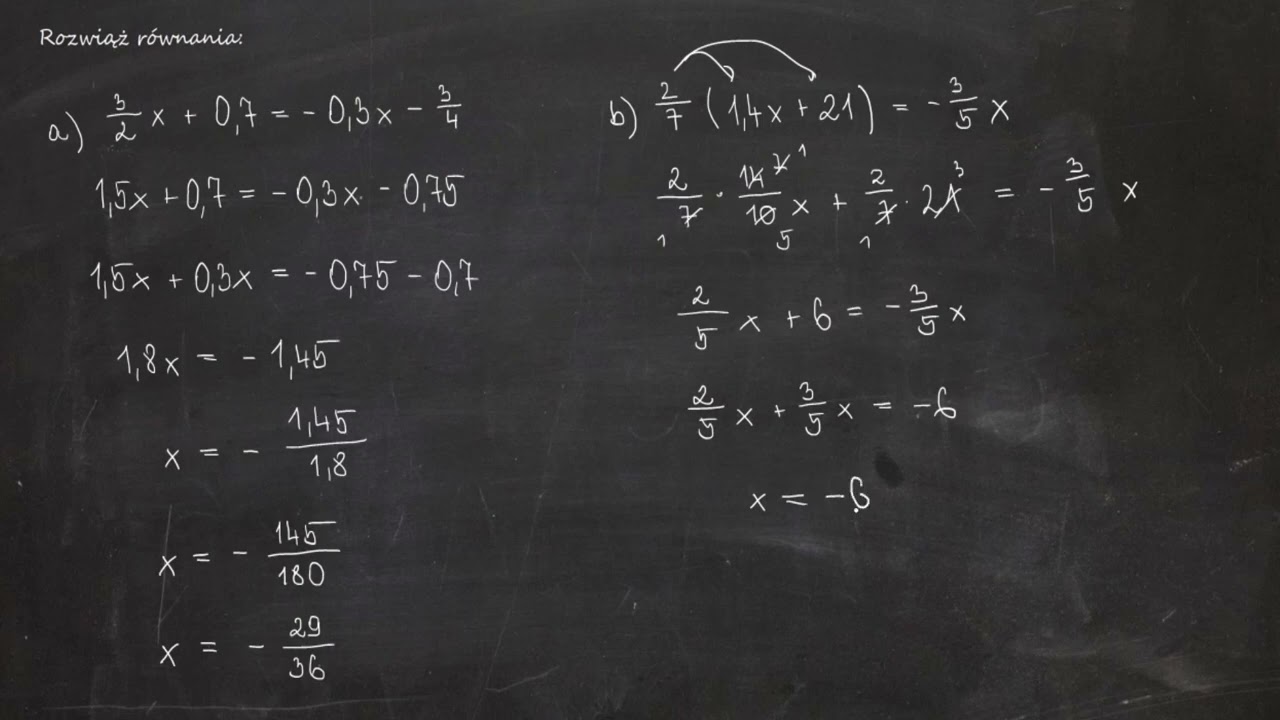 Rozwiąż równania:
a) 3/2 x + 0,7 = - 0,3x - 3/4
1,5x + 0,7 = - 0,3x - 0,75
1,5x + 0,3x = - 0,75 - 0,7
1,8x = - 1,45
x = - 1,45/1,8
x = - 145/180
x = - 29/36
b) 2/7 (1,4x + 21) = - 3/5 x
2/7 1 · 14 2 1/10 5 x + 2/7 1 · 21 3 = - 3/5 x
2/5 x + 6 = - 3/5 x
2/5 x + 3/5 x = -6
x = -6